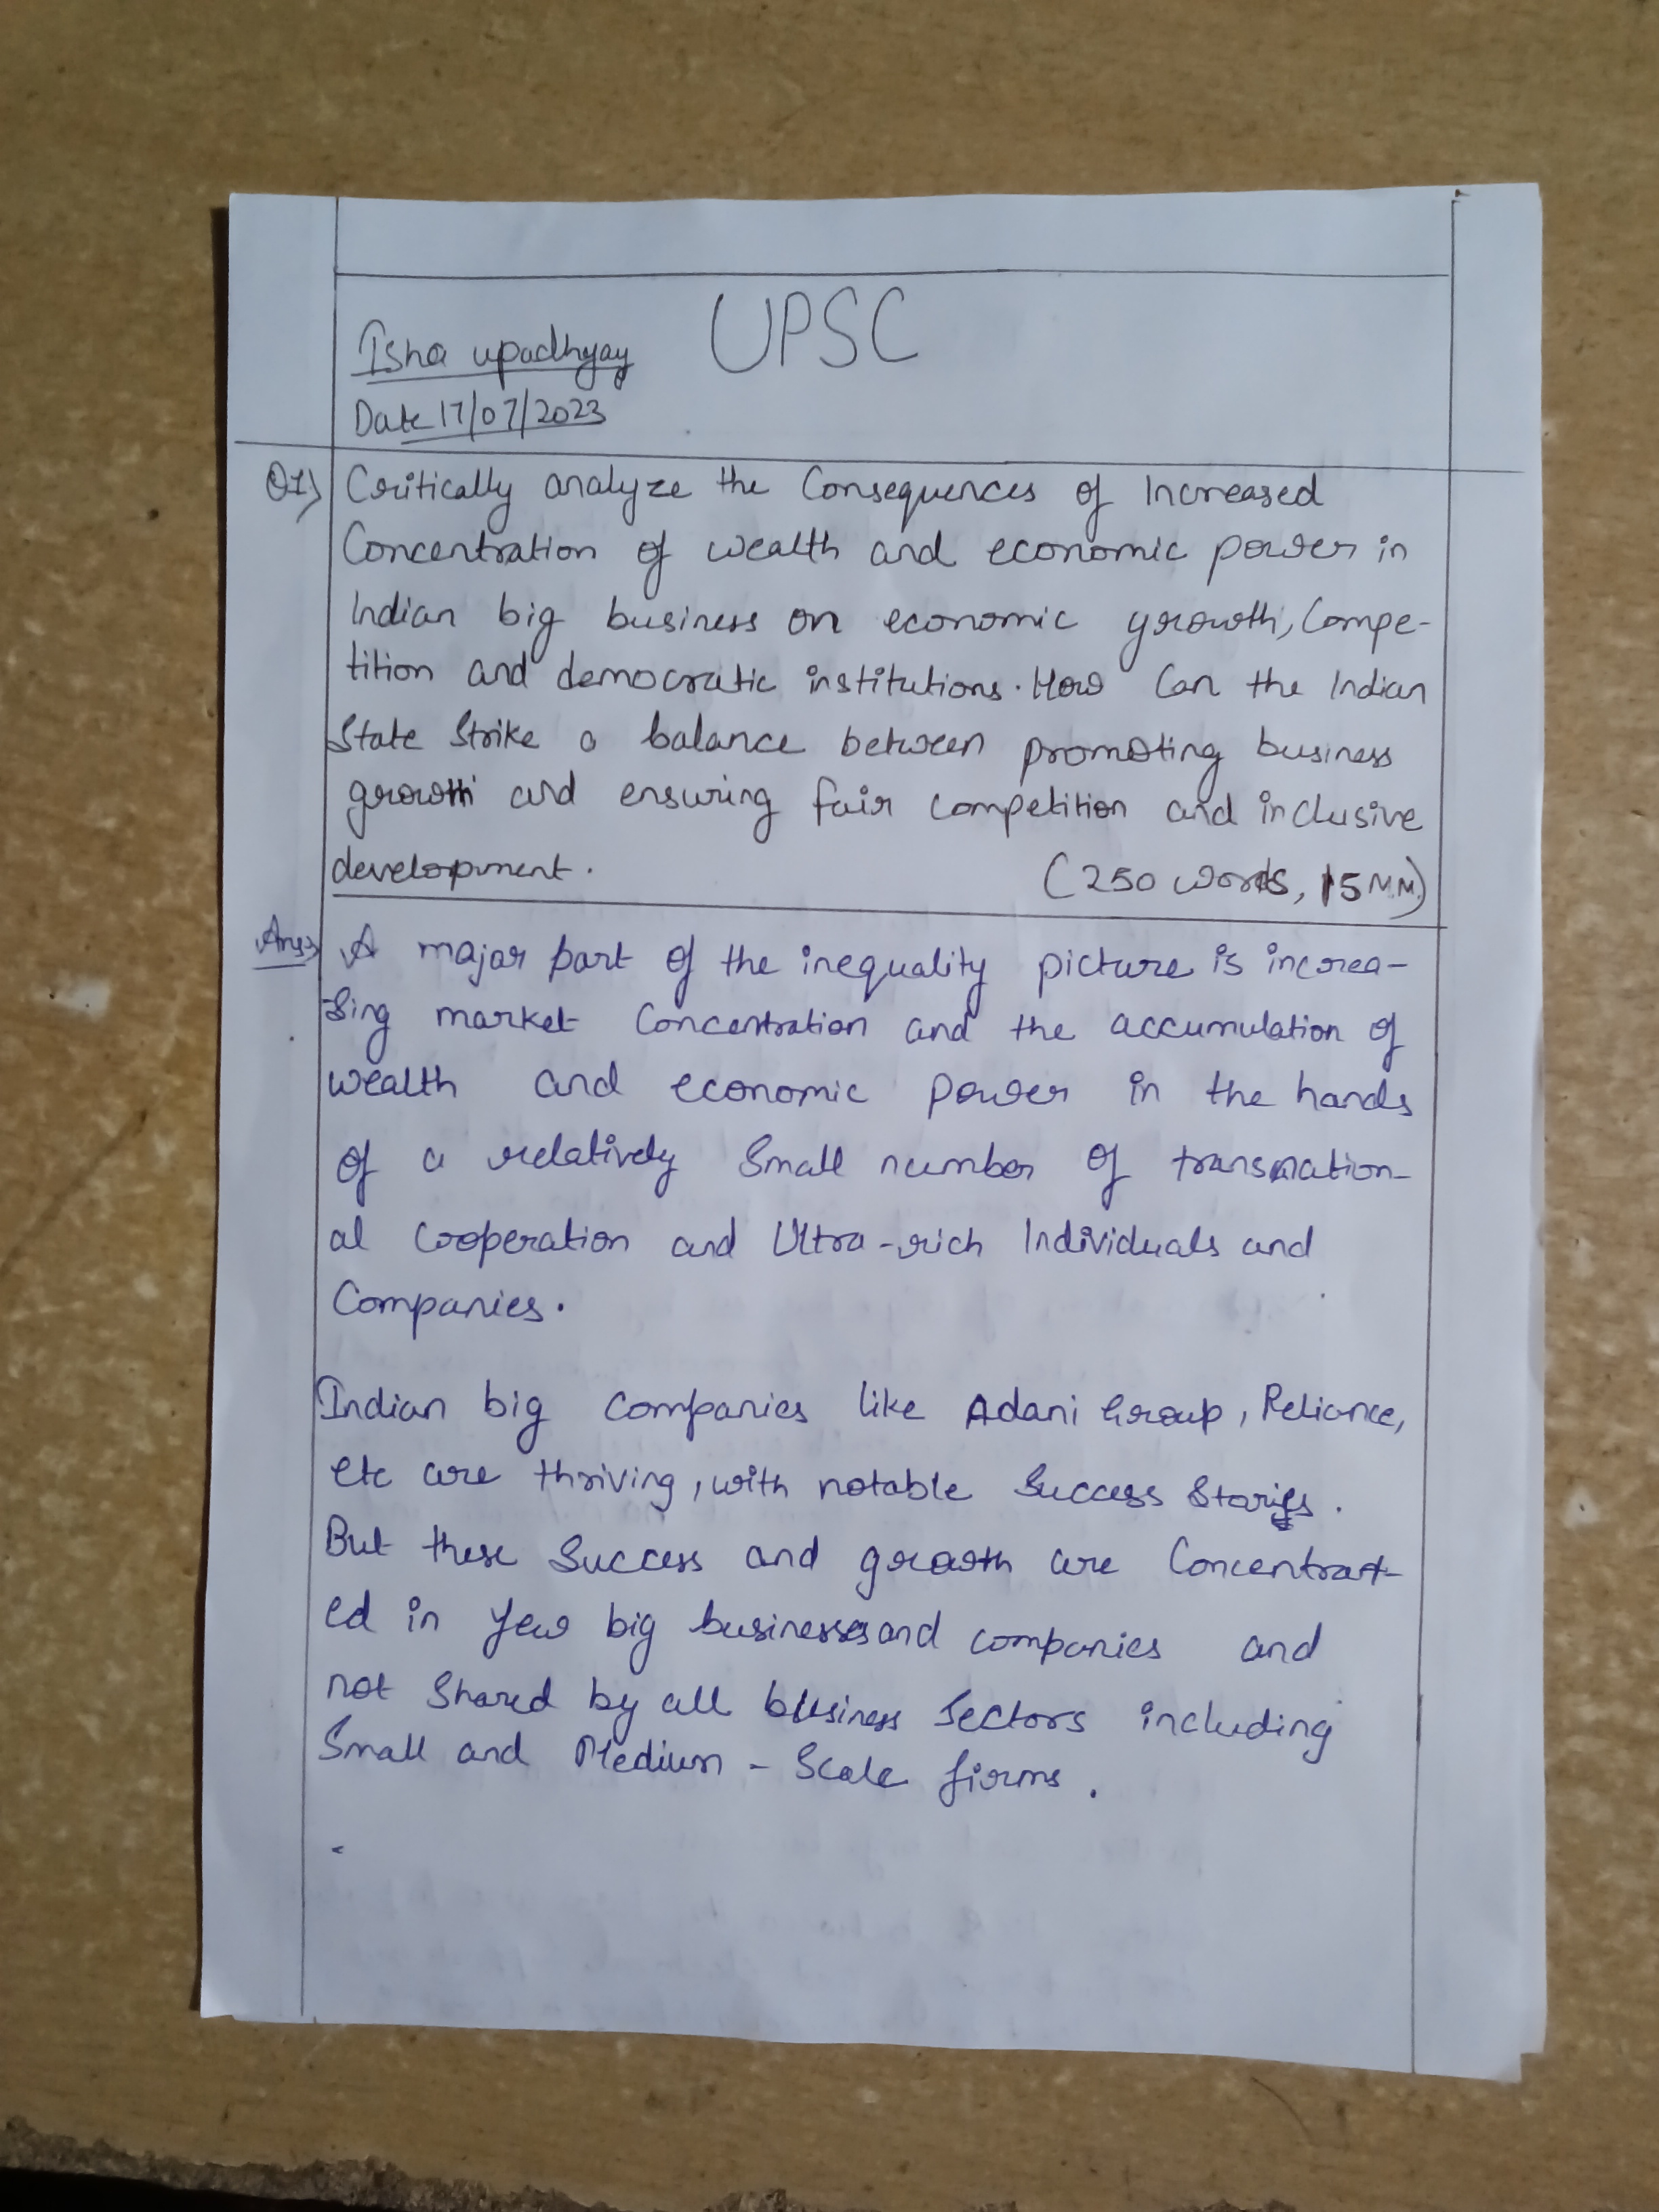 UPSC
Isha upadhyay
Date 17/07/2023
Q1) Critically analyze the Consequences of Increased
Concentration of wealth and economic power in
Indian big business on economic growth, Compe-
tition and democratic institutions. How Can the Indian
State Strike a balance between promoting business
growth and ensuring fair competition and inclusive
development. (250 words, 15 MM)
Ans) A major part of the inequality picture is increa-
-sing market Concentration and the accumulation of
wealth and economic power in the hands
of a relatively Small number of transnation-
al Cooperation and Ultra-rich Individuals and
Companies.
Indian big Companies like Adani Group, Reliance,
etc are thriving, with notable Success Stories.
But these Success and growth are Concentrat-
ed in few big businesses and companies and
not Shared by all business Sectors including
Small and Medium - Scale firms.